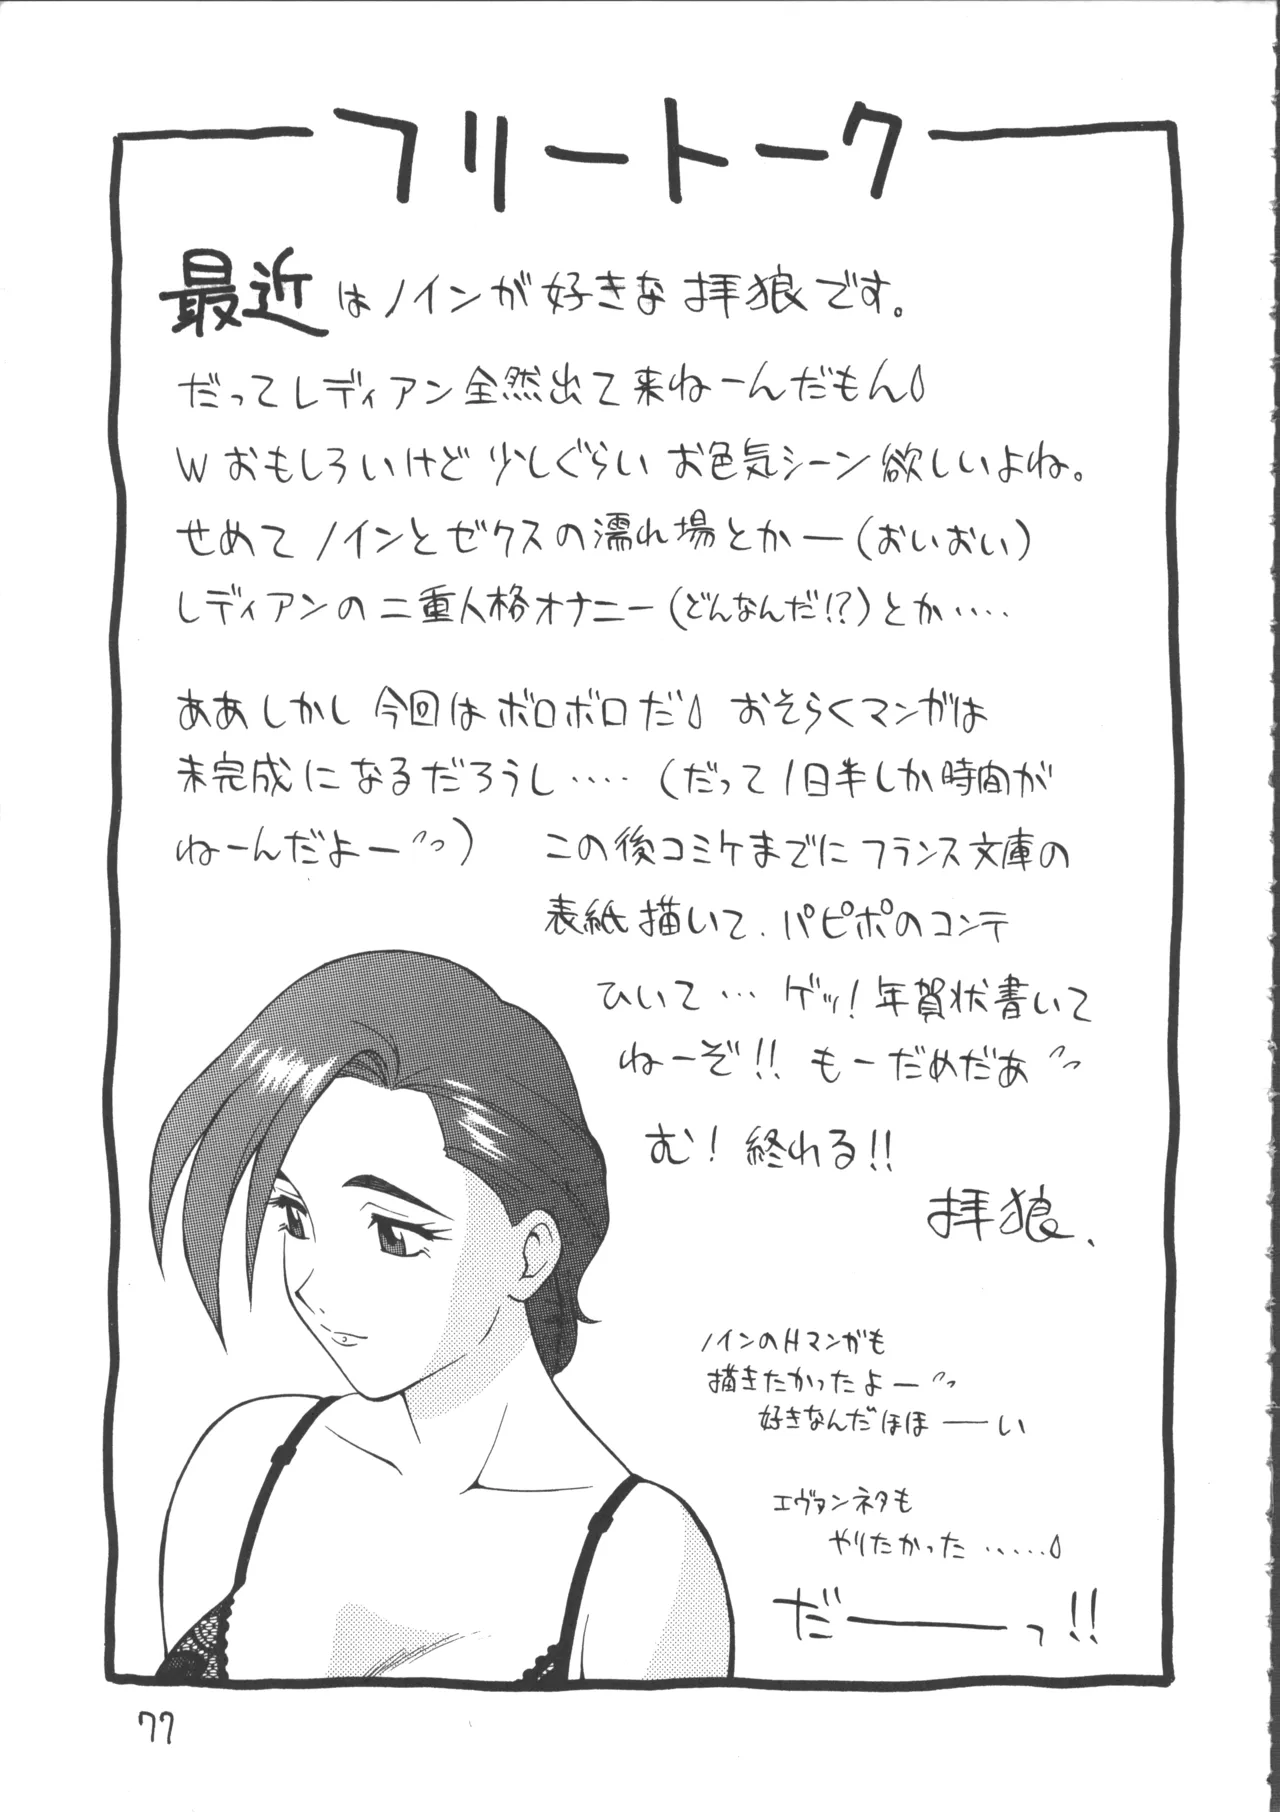 フリートーク
最近はノインが好きな拝狼です。
だってレディアン全然出て来ねーんだもん
Wおもしろいけど少しぐらいお色気シーン欲しいよね。
せめてノインとゼクスの濡れ場とかー(おいおい)
レディアンの二重人格オナニー(どんなんだ!?)とか‥‥
ああしかし今回はボロボロだ おそらくマンガは
未完成になるだろうし‥‥(だって1日半しか時間が
ねーんだよー)
この後コミケまでにフランス文庫の
表紙描いて、パピポのコンテ
ひいて…ゲッ!年賀状書いて
ねーぞ!!もーだめだあ
む!終れる!!
拝狼.
ノインのHマンガも
描きたかったよー
好きなんだほほーーい
エヴァンネタも
やりたかった‥‥‥
だーーーっ!!
77